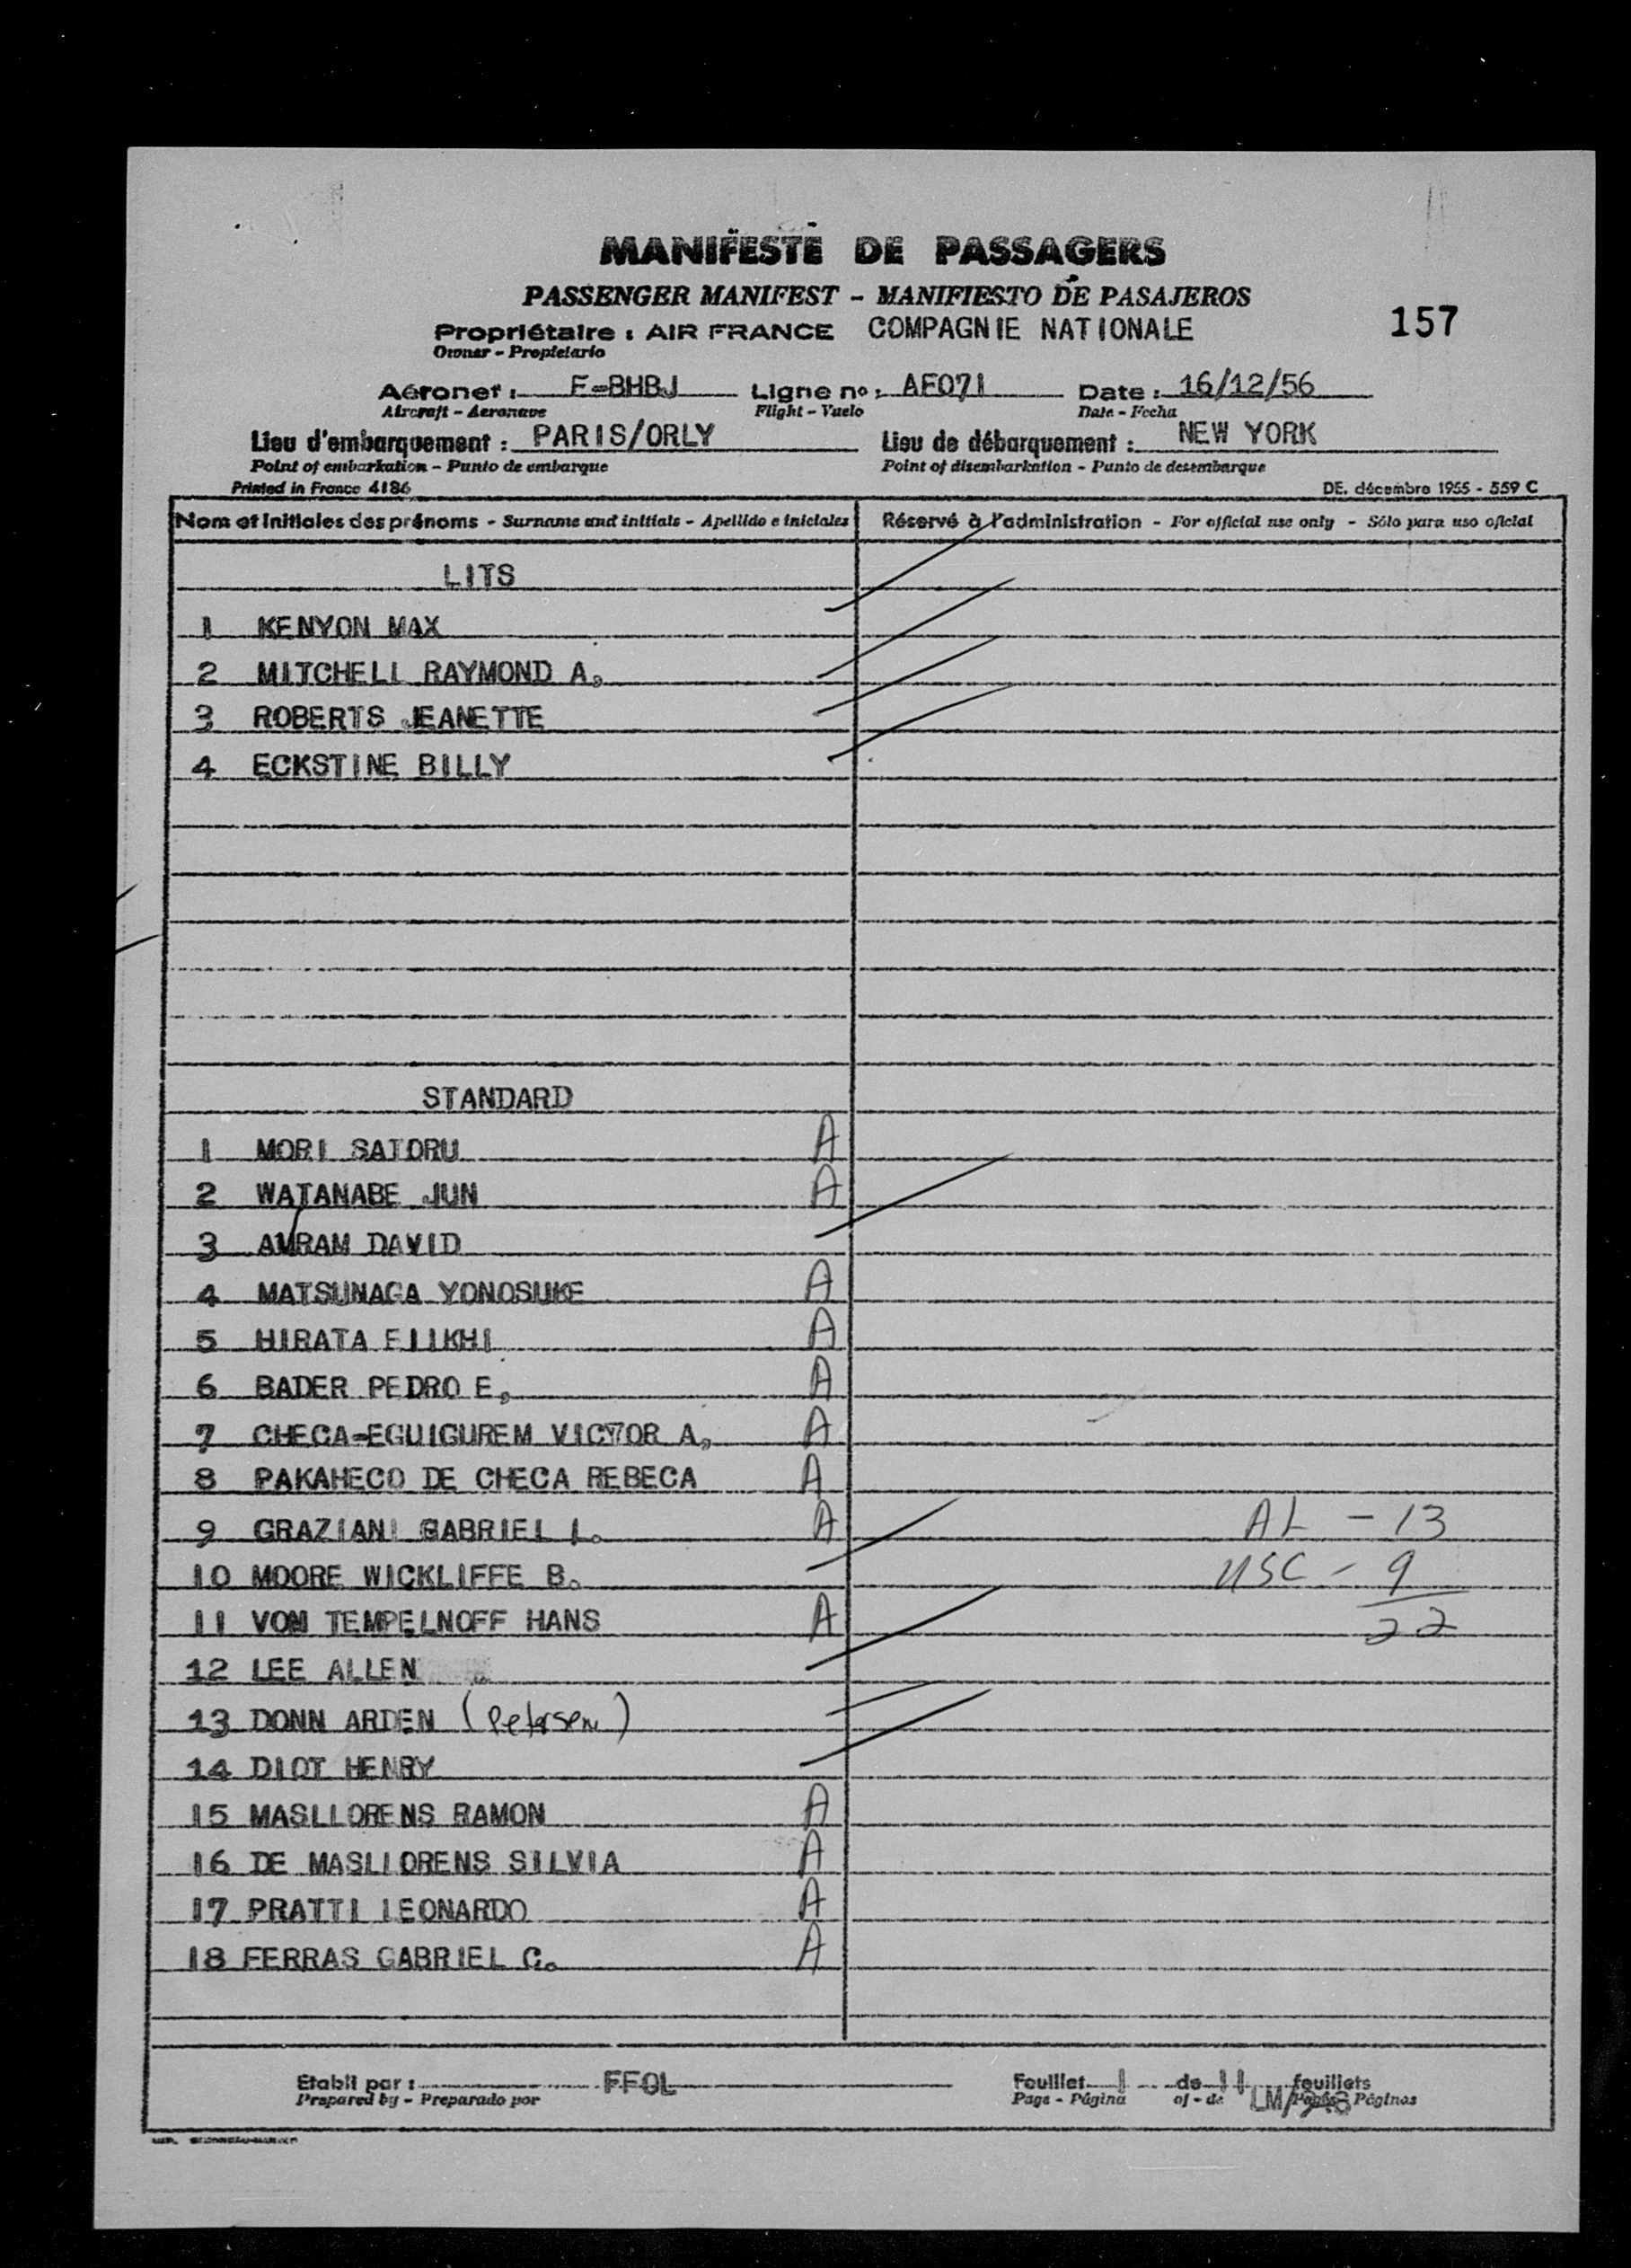 MANIFESTE DE PASSAGERS
PASSENGER MANIFEST - MANIFIESTO DE PASAJEROS
Propriétaire : AIR FRANCE COMPAGNIE NATIONALE 157
Owner - Propietario
Aéronef : F-BHBJ Ligne no : AF071 Date : 16/12/56
Aircraft - Aeronave Flight - Vuelo Date - Fecha
Lieu d'embarquement : PARIS/ORLY Lieu de débarquement : NEW YORK
Point of embarkation - Punto de embarque Point of disembarkation - Punto de desembarque
Printed in France 4186 DE. décembre 1955 - 559 C
Nom et initiales des prénoms - Surname and initials - Apellido e iniciales Réservé à l'administration - For official use only - Sólo para uso oficial
LITS
1 KENYON MAX
2 MITCHELL RAYMOND A.
3 ROBERTS JEANETTE
4 ECKSTINE BILLY
STANDARD
1 MORI SATORU A
2 WATANABE JUN A
3 AMRAM DAVID
4 MATSUNAGA YONOSUKE A
5 HIRATA EIIKHI A
6 BADER PEDRO E. A
7 CHECA-EGUIGUREM VICTOR A. A
8 PAKAHECO DE CHECA REBECA A
9 GRAZIANI GABRIEL L. A AL - 13
10 MOORE WICKLIFFE B. USC - 9
11 VOM TEMPELNOFF HANS A 22
12 LEE ALLEN
13 DONN ARDEN (Petersen)
14 DIOT HENRY
15 MASLLORENS RAMON A
16 DE MASLLORENS SILVIA A
17 PRATTI LEONARDO A
18 FERRAS GABRIEL C. A
Etabli par : FFOL Feuillet 1 de 11 feuillets
Prepared by - Preparado por Page - Página of - de LM/ Pages - Páginas